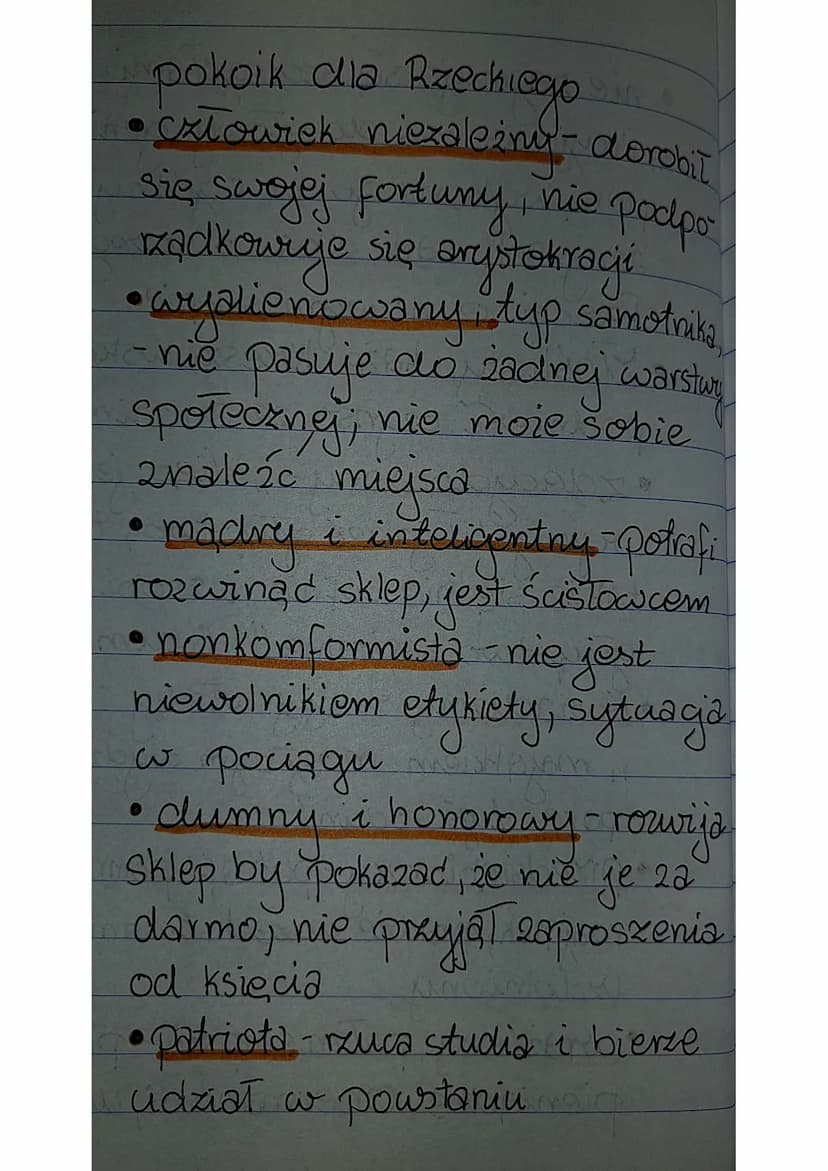 pokoik dla Rzeckiego
• człowiek niezależny - dorobił
się swojej fortuny, nie podpo-
rządkowuje się arystokracji
• wyalienowany, typ samotnika,
- nie pasuje do żadnej warstwy
społecznej; nie może sobie
znaleźć miejsca
• mądry i inteligentny - potrafi
rozwinąć sklep, jest ścisłowcem
• nonkomformista - nie jest
niewolnikiem etykiety, sytuacja
w pociągu
• dumny i honorowy - rozwija
sklep by pokazać, że nie je za
darmo; nie przyjął zaproszenia
od księcia
• patriota - rzuca studia i bierze
udział w powstaniu